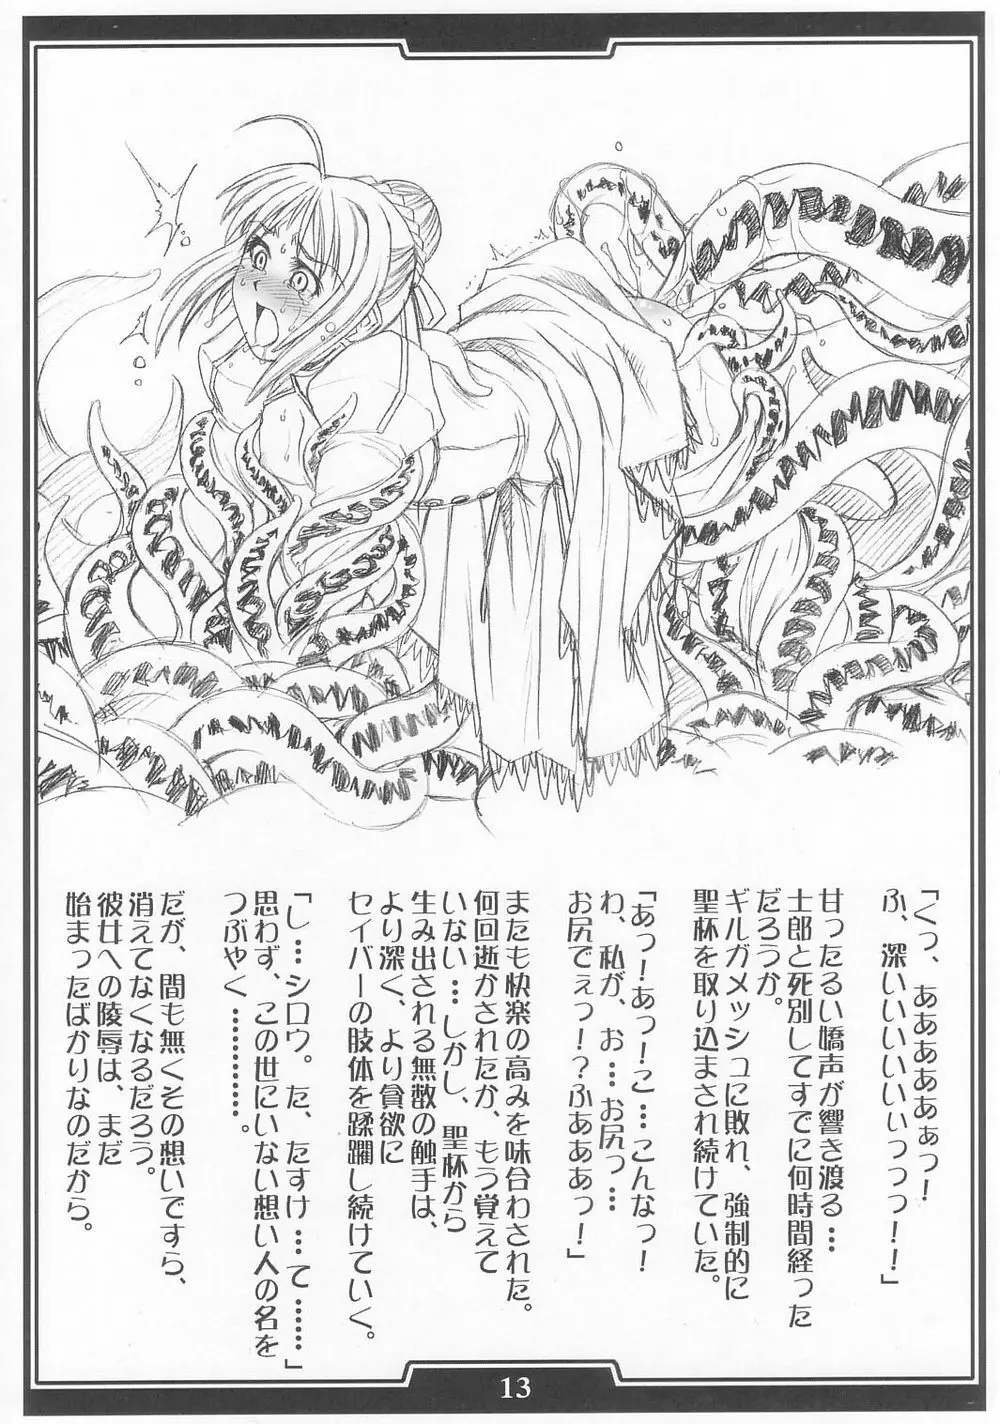 「くっ、あああああぁっ！
ふ、深いいいいいぃっっっ！！」
甘ったるい嬌声が響き渡る…
士郎と死別してすでに何時間経った
だろうか。
ギルガメッシュに敗れ、強制的に
聖杯を取り込まされ続けていた。
「あっ！あっ！こ…こんなっ！
わ、私が、お…お尻っ…
お尻でぇっ！？ふあああっ！」
またも快楽の高みを味合わされた。
何回逝かされたか、もう覚えて
いない…しかし、聖杯から
生み出される無数の触手は、
より深く、より貪欲に
セイバーの肢体を蹂躙し続けていく。
「し…シロウ。た、たすけ…て……」
思わず、この世にいない想い人の名を
つぶやく…………。
だが、間も無くその想いですら、
消えてなくなるだろう。
彼女への陵辱は、まだ
始まったばかりなのだから。
13